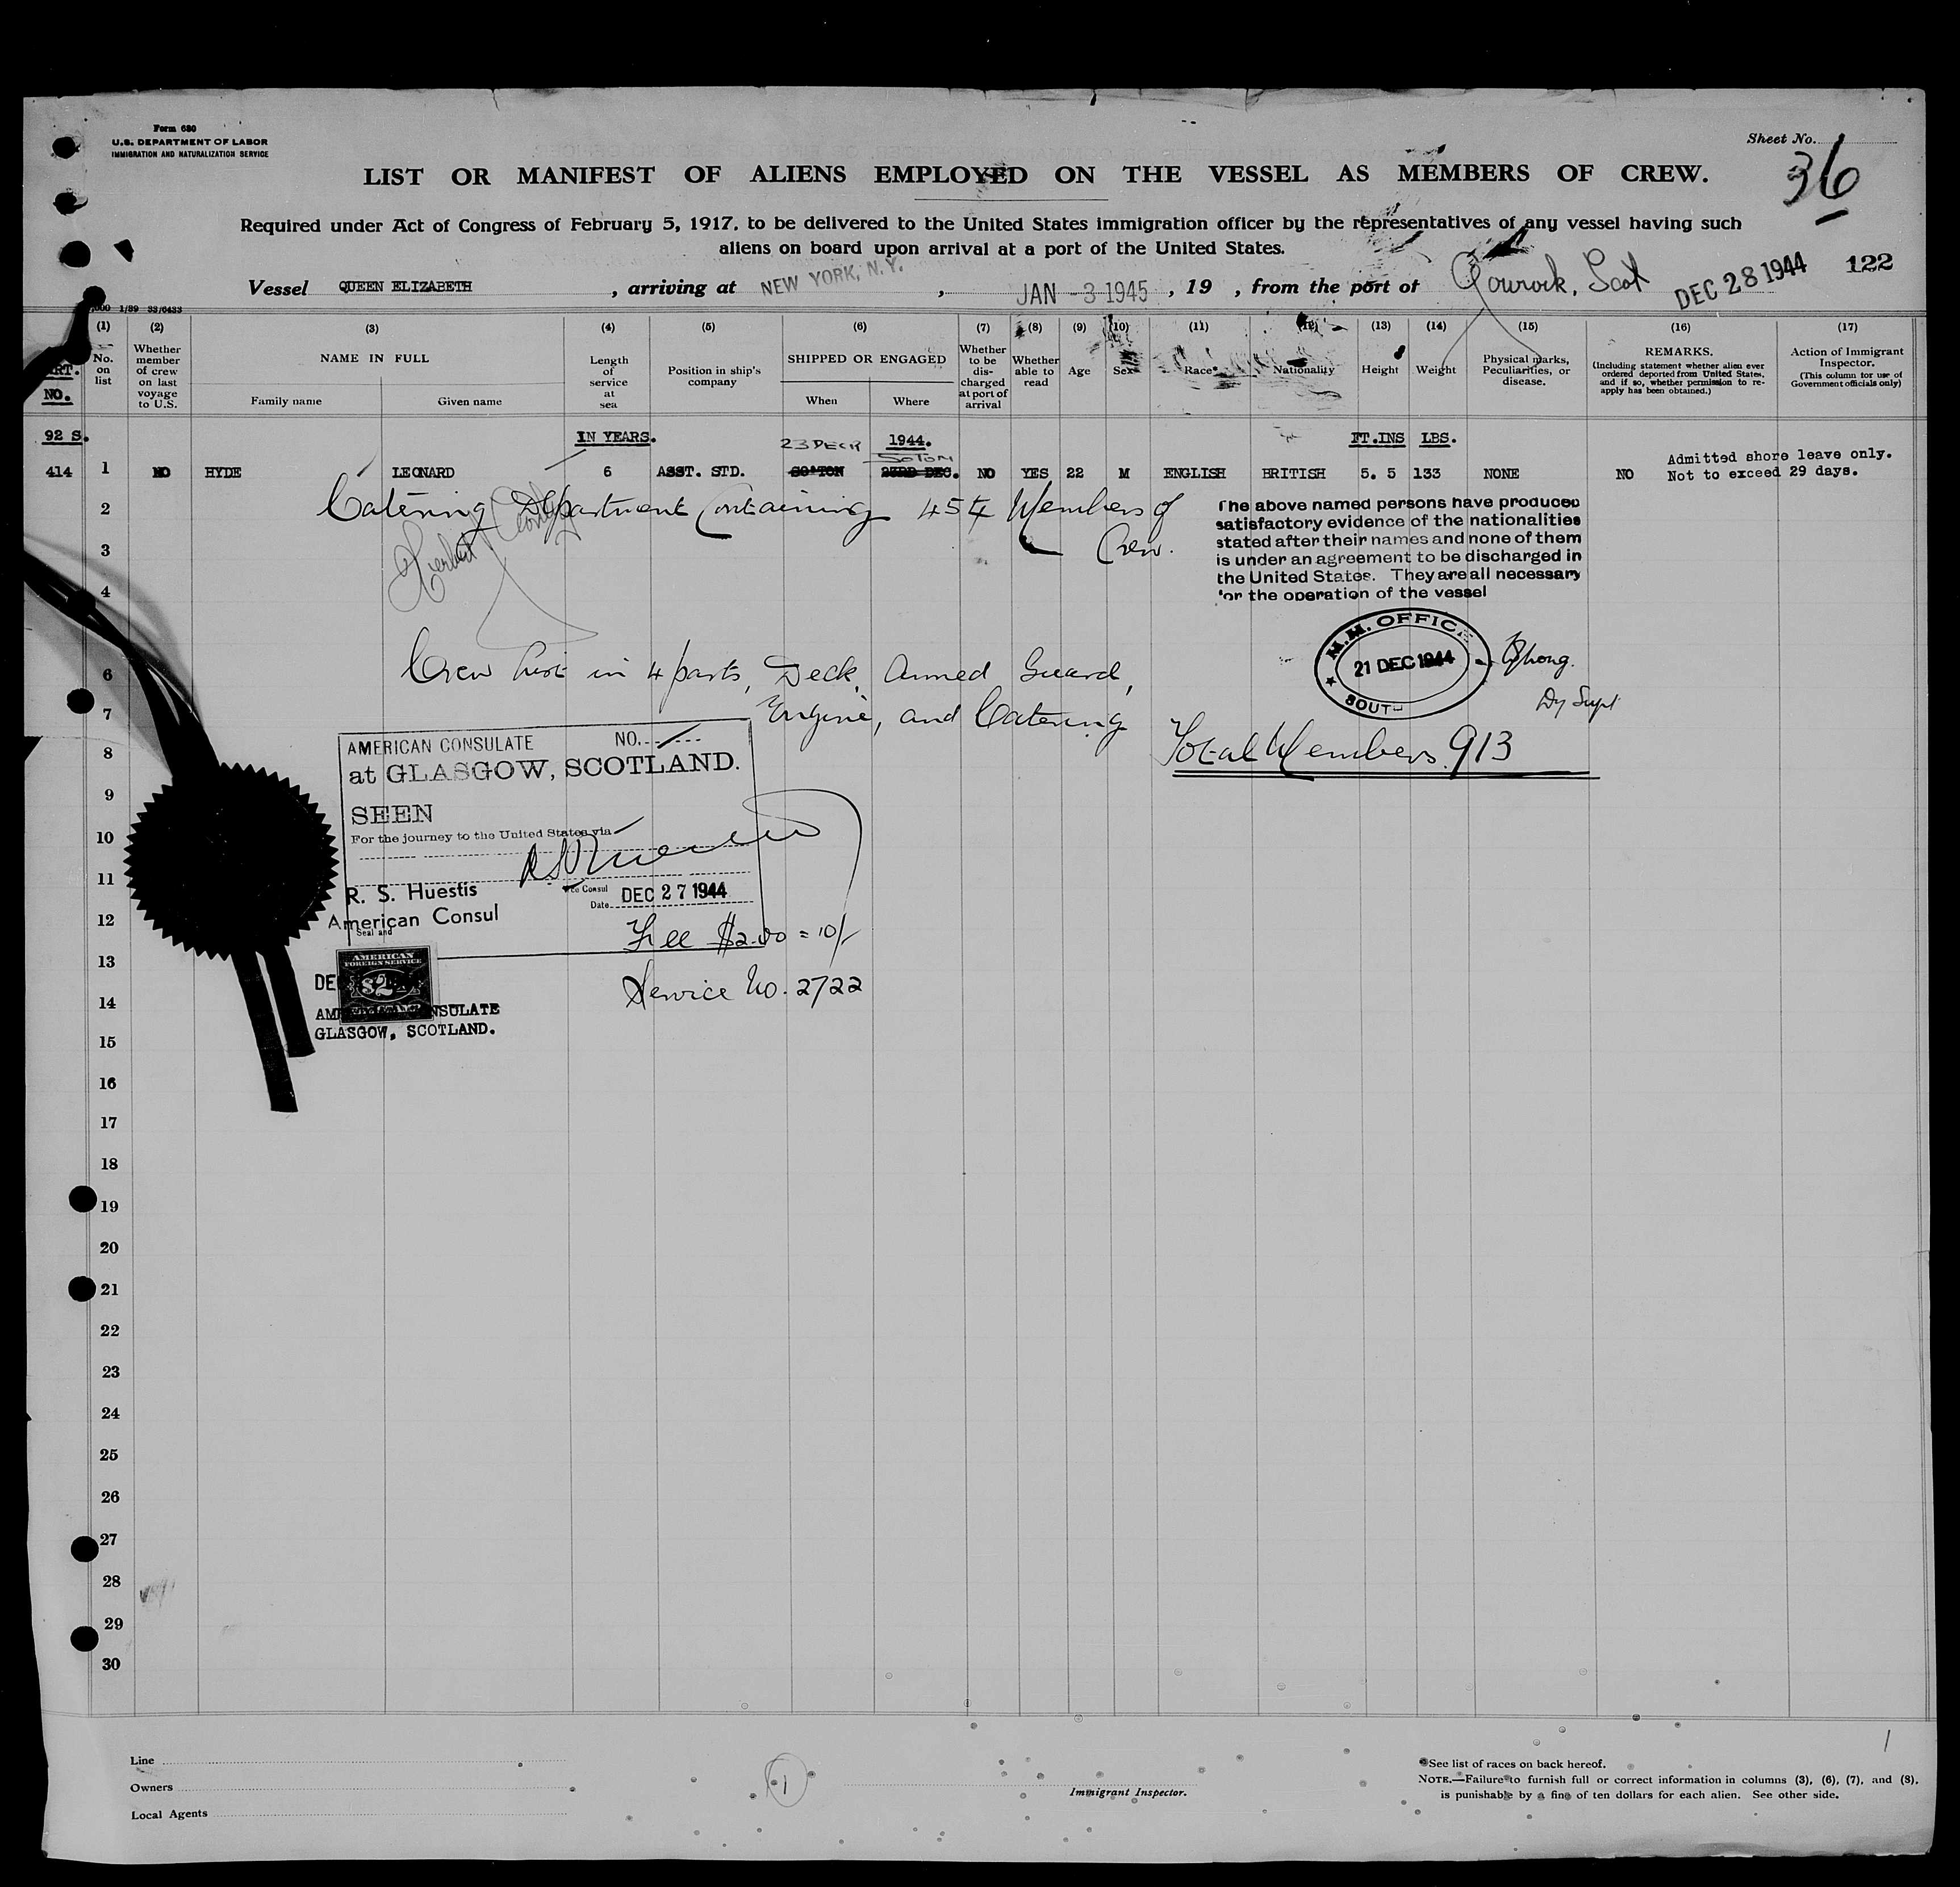 Form 680
U.S. DEPARTMENT OF LABOR
IMMIGRATION AND NATURALIZATION SERVICE
Sheet No.
36
LIST OR MANIFEST OF ALIENS EMPLOYED ON THE VESSEL AS MEMBERS OF CREW.
Required under Act of Congress of February 5, 1917, to be delivered to the United States immigration officer by the representatives of any vessel having such
aliens on board upon arrival at a port of the United States.
Vessel QUEEN ELIZABETH, arriving at NEW YORK, N.Y., JAN -3 1945, 19 , from the port of Gourock, Scot DEC 28 1944 122
1/39 33/6433
(1) (2) (3) (4) (5) (6) (7) (8) (9) (10) (11) (12) (13) (14) (15) (16) (17)
No. on list
Whether member of crew on last voyage to U.S.
NAME IN FULL
Family name
Given name
Length of service at sea
Position in ship's company
SHIPPED OR ENGAGED
When
Where
Whether to be discharged at port of arrival
Whether able to read
Age
Sex
Race*
Nationality
Height
Weight
Physical marks, Peculiarities, or disease.
REMARKS.
(Including statement whether alien ever ordered deported from United States, and if so, whether permission to re-apply has been obtained.)
Action of Immigrant Inspector.
(This column for use of Government officials only)
NO.
92 S. IN YEARS. 23 DECR 1944. FT.INS LBS.
SOTON
414 1 NO HYDE LEONARD 6 ASST. STD. SO'TON 23RD DEC. NO YES 22 M ENGLISH BRITISH 5. 5 133 NONE NO
Admitted shore leave only.
Not to exceed 29 days.
2 Catering Department Containing 454 Members of
3 Crew.
4
The above named persons have produced
satisfactory evidence of the nationalities
stated after their names and none of them
is under an agreement to be discharged in
the United States. They are all necessary
for the operation of the vessel
M.M. OFFICE
21 DEC 1944
SOUTH
Dy Supt
6 Crew List in 4 parts, Deck, Armed Guard,
7 Engine, and Catering
Total Members. 913
8
AMERICAN CONSULATE NO. 1
at GLASGOW, SCOTLAND.
9
SEEN
10 For the journey to the United States via
11 R. S. Huestis
Vice Consul
Date DEC 27 1944
12 American Consul
Seal and
Fee $2.00 = 10/-
13
AMERICAN
FOREIGN SERVICE
$2
DE
14 Service No. 2722
AM NSULATE
GLASGOW, SCOTLAND.
15
16
17
18
19
20
21
22
23
24
25
26
27
28
29
30
Line
Owners
Local Agents
1
Immigrant Inspector.
1
*See list of races on back hereof.
NOTE.—Failure to furnish full or correct information in columns (3), (6), (7), and (8),
is punishable by a fine of ten dollars for each alien. See other side.